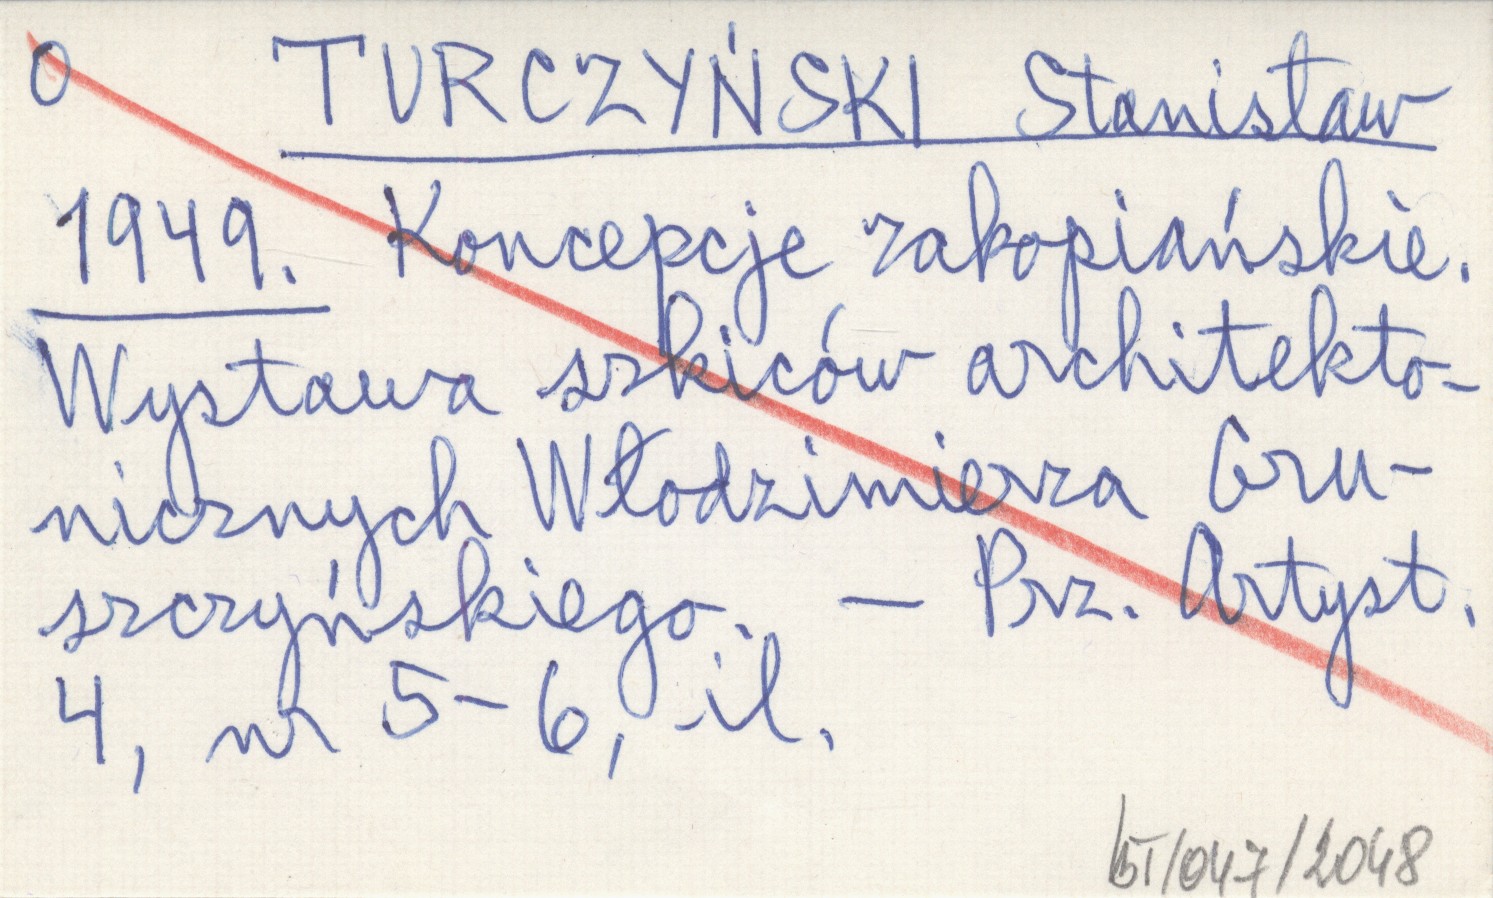 O TURCZYŃSKI Stanisław
1949. Koncepcje zakopiańskie.
Wystawa szkiców architekto-
nicznych Włodzimierza Gru-
szczyńskiego. — Prz. Artyst.
4, nr 5-6, il.
/047/2048